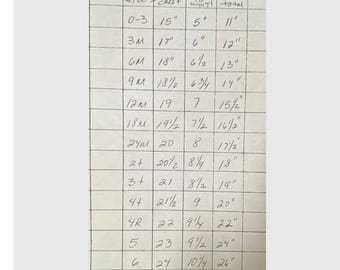 0-3 15" 5" 11"
3M 17" 6" 12"
6M 18" 6 1/2 13"
9M 18 1/2 6 3/4 14"
12M 19 7 15 1/2"
18M 19 1/2 7 1/2 16 1/2"
24M 20 8 17 1/2"
2t 20 1/2 8 1/4 18"
3t 21 8 1/2 19"
4t 21 1/2 9 20"
4R 22 9 1/4 22"
5 23 9 1/2 24"
6 24 10 1/4 26"